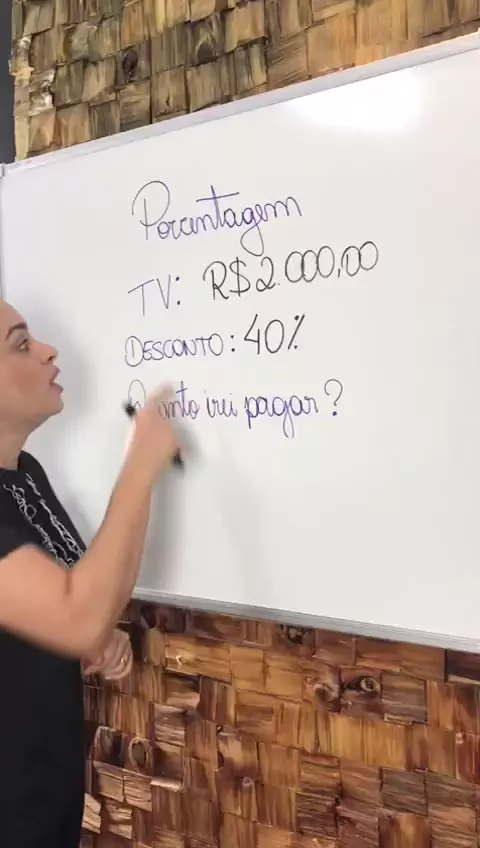 Porcentagem
TV: R$2.000,00
DESCONTO: 40%
Quanto irei pagar?